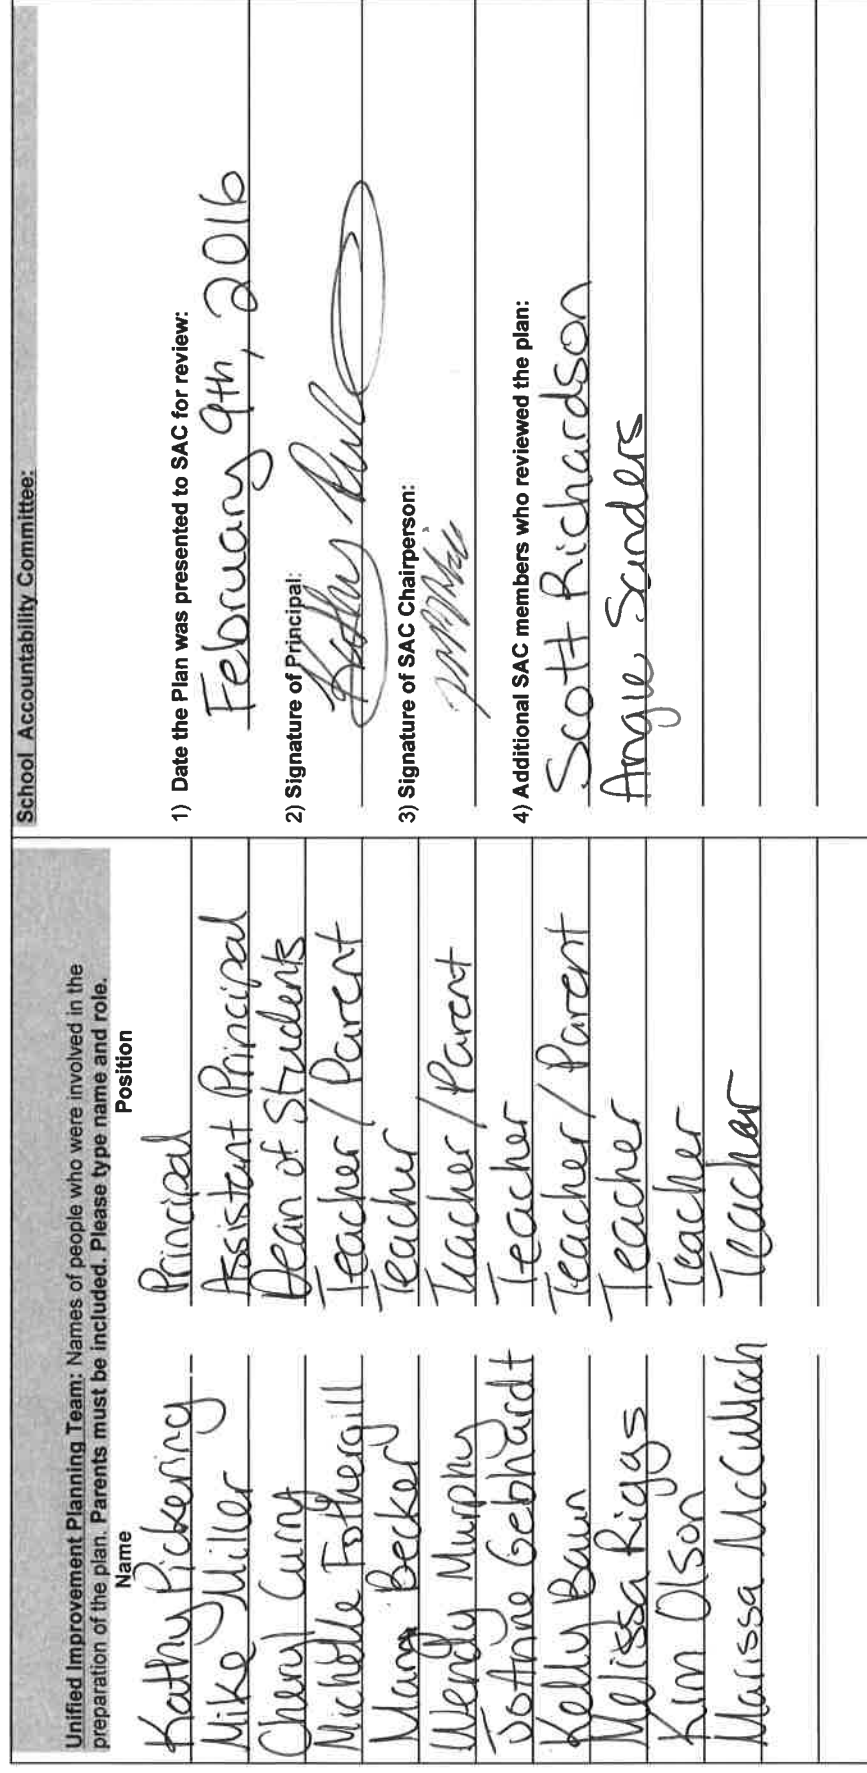 Unified Improvement Planning Team: Names of people who were involved in the
preparation of the plan. Parents must be included. Please type name and role.
Name Position
Kathy Pickering Principal
Mike Miller Assistant Principal
Cheryl Curry Dean of Students
Michelle Fothergill Teacher/Parent
Becker Teacher
Wendy Murphy Teacher/Parent
JoAnne Gebhardt Teacher
Kelly Baun Teacher/Parent
Melissa Riggs Teacher
Kim Olson Teacher
Marissa McCulloch Teacher
School Accountability Committee:
1) Date the Plan was presented to SAC for review:
February 9th, 2016
2) Signature of Principal:
Kathy
3) Signature of SAC Chairperson:
4) Additional SAC members who reviewed the plan:
Scott Richardson
Angie Sanders